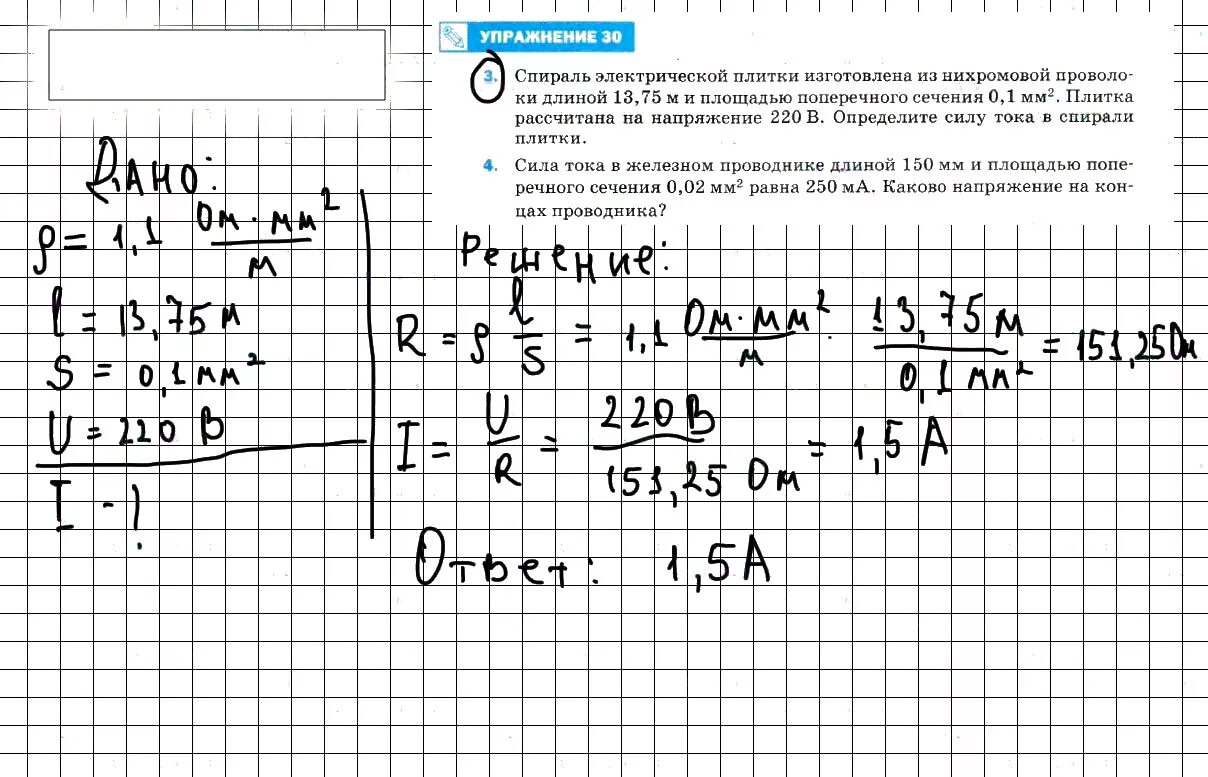 УПРАЖНЕНИЕ 30
3. Спираль электрической плитки изготовлена из нихромовой проволо-
ки длиной 13,75 м и площадью поперечного сечения 0,1 мм². Плитка
рассчитана на напряжение 220 В. Определите силу тока в спирали
плитки.
4. Сила тока в железном проводнике длиной 150 мм и площадью попе-
речного сечения 0,02 мм² равна 250 мА. Каково напряжение на кон-
цах проводника?
Дано:
ρ = 1,1 Ом · мм² / м
l = 13,75 м
S = 0,1 мм²
U = 220 В
I - ?
Решение:
R = ρ l/S = 1,1 Ом · мм² / м · 13,75 м / 0,1 мм² = 151,25 Ом
I = U/R = 220 В / 151,25 Ом = 1,5 А
Ответ: 1,5 А